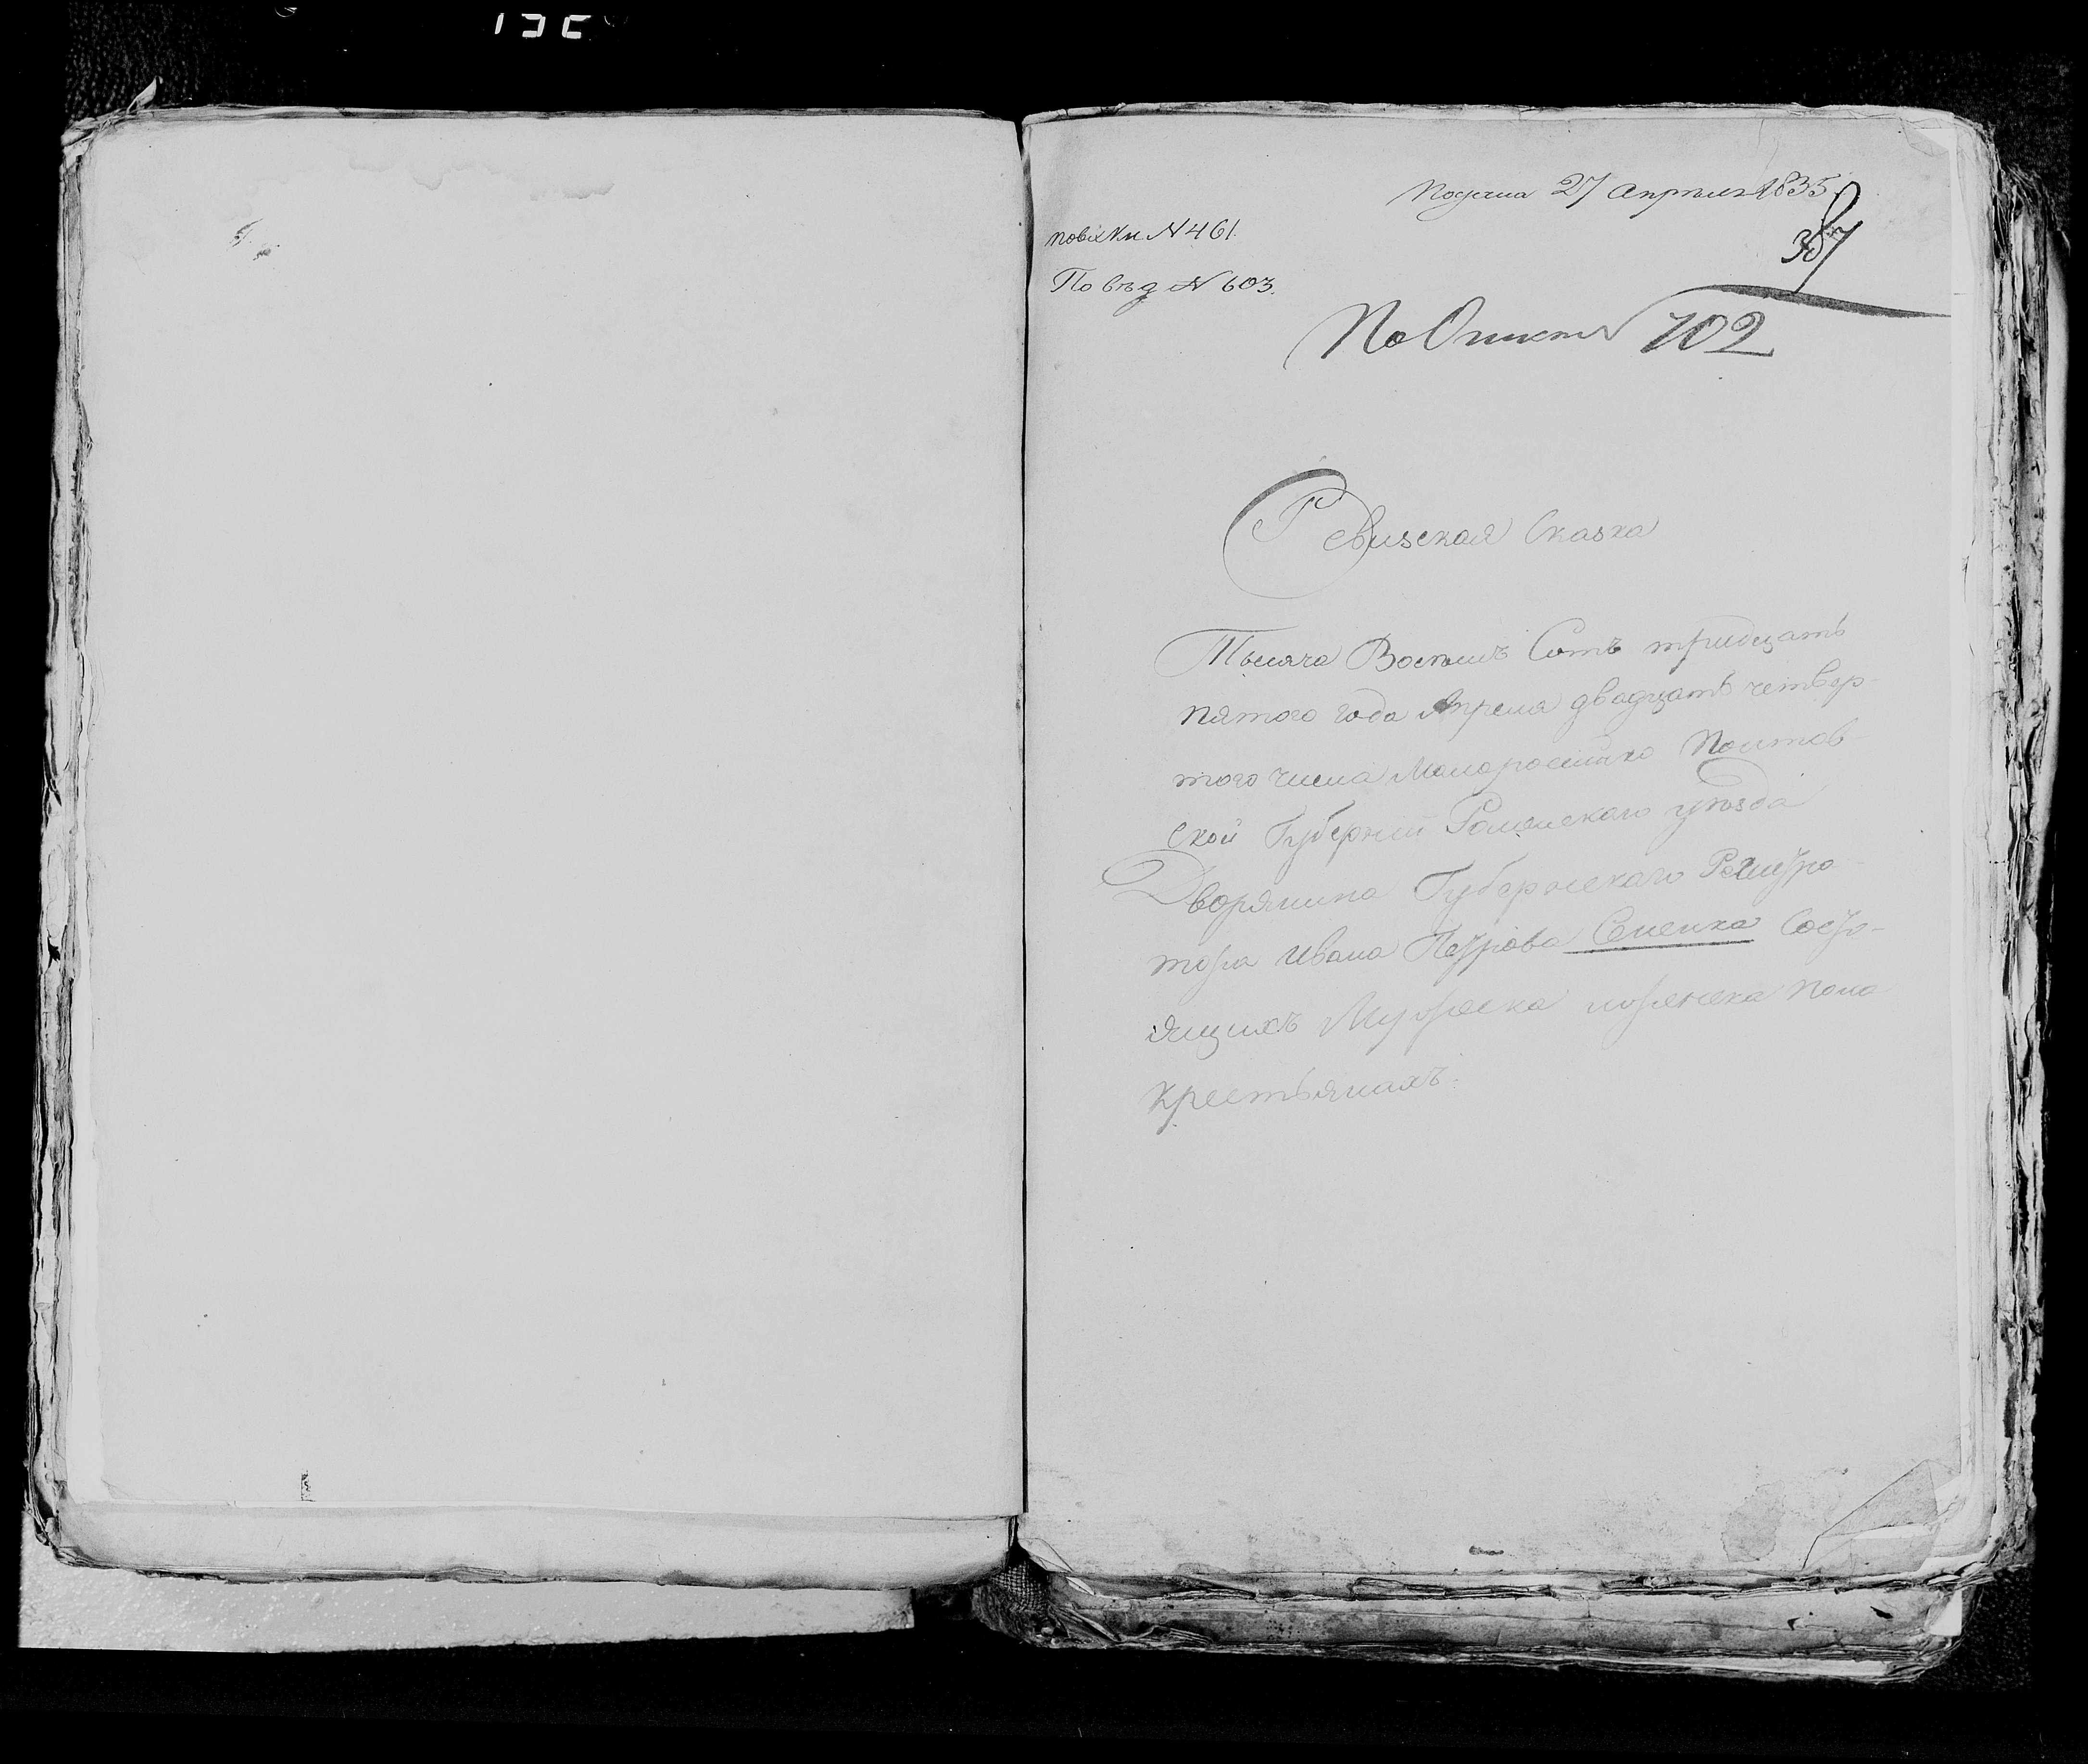 Подана 27 апреля 1835.
387
по вх Кн. N 461.
По вѣд N 603.
По Описи N 102
Ревизская Сказка
Тысяча Восемъ Сотъ тридцать
пятого года Апреля двадцать четвер-
того числа Малоросийско Полтов-
ской Губернии Роменского уѣзда
Дворянина Губернскаго Регистро-
тора Ивана Петрова Сененка Состо-
ящихъ Мужеска и женска пола
крестьянахъ.